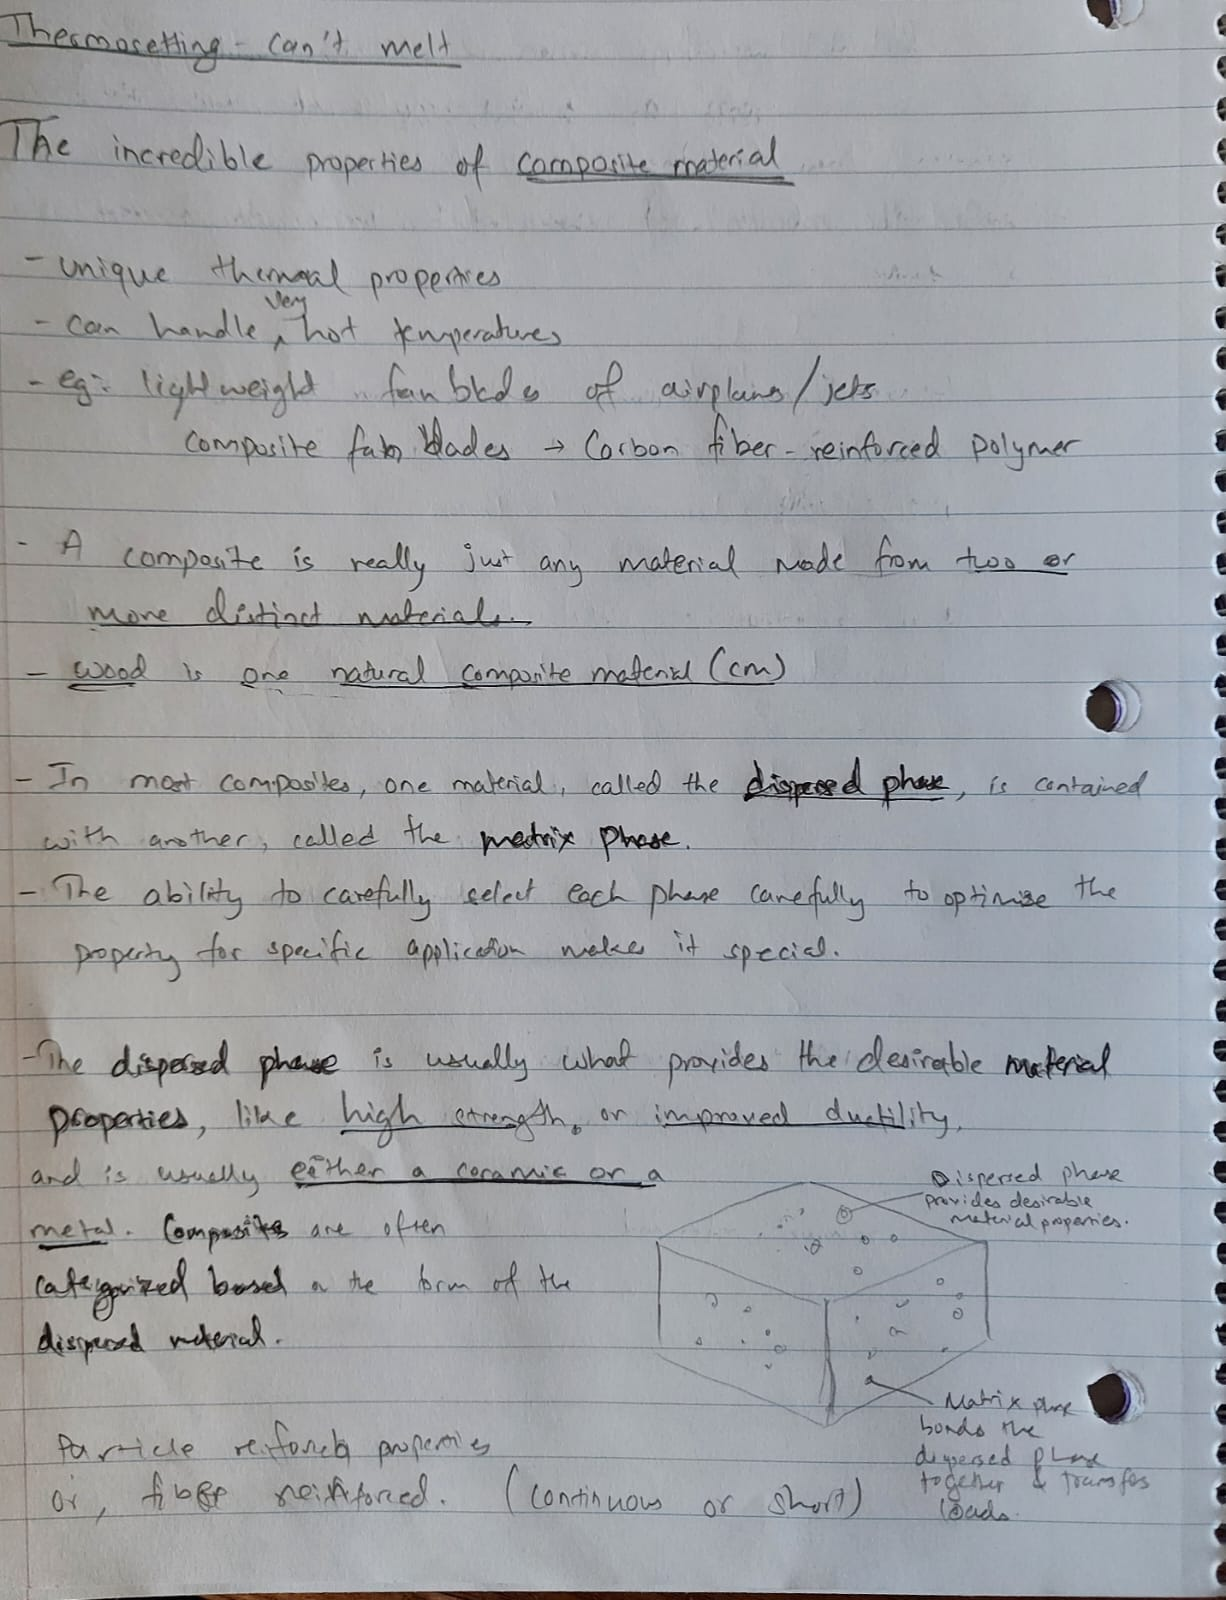 Thermosetting - can't melt
The incredible properties of composite material
- unique thermal properties
- can handle very hot temperatures
- eg: lightweight fan blades of airplanes/jets
composite fan blades → Carbon fiber-reinforced polymer
- A composite is really just any material made from two or
more distinct materials.
- wood is one natural composite material (cm)
- In most composites, one material, called the dispersed phase, is contained
with another, called the matrix phase.
- The ability to carefully select each phase carefully to optimize the
property for specific application makes it special.
- The dispersed phase is usually what provides the desirable material
properties, like high strength, or improved ductility,
and is usually either a ceramic or a
metal. Composites are often
categorized based on the form of the
dispersed material.
Dispersed phase
provides desirable
material properties.
Matrix phase
bonds the
dispersed phase
together & transfers
loads.
Particle reinforced properties
or, fiber reinforced. (continuous or short)